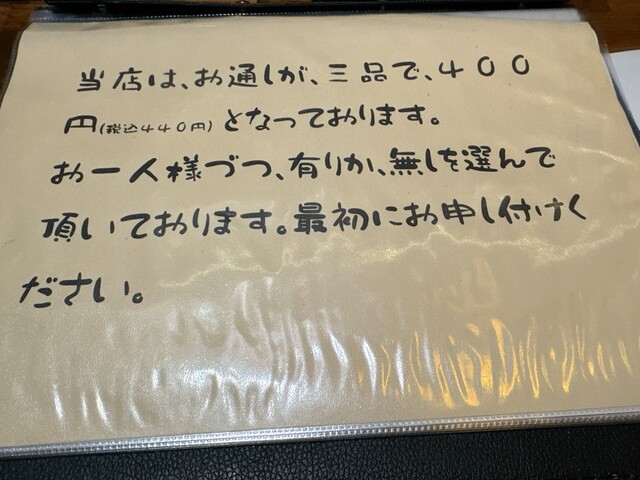 当店は、お通しが、三品で、４００
円(税込４４０円)となっております。
お一人様づつ、有りか、無しを選んで
頂いております。最初にお申し付けく
ださい。